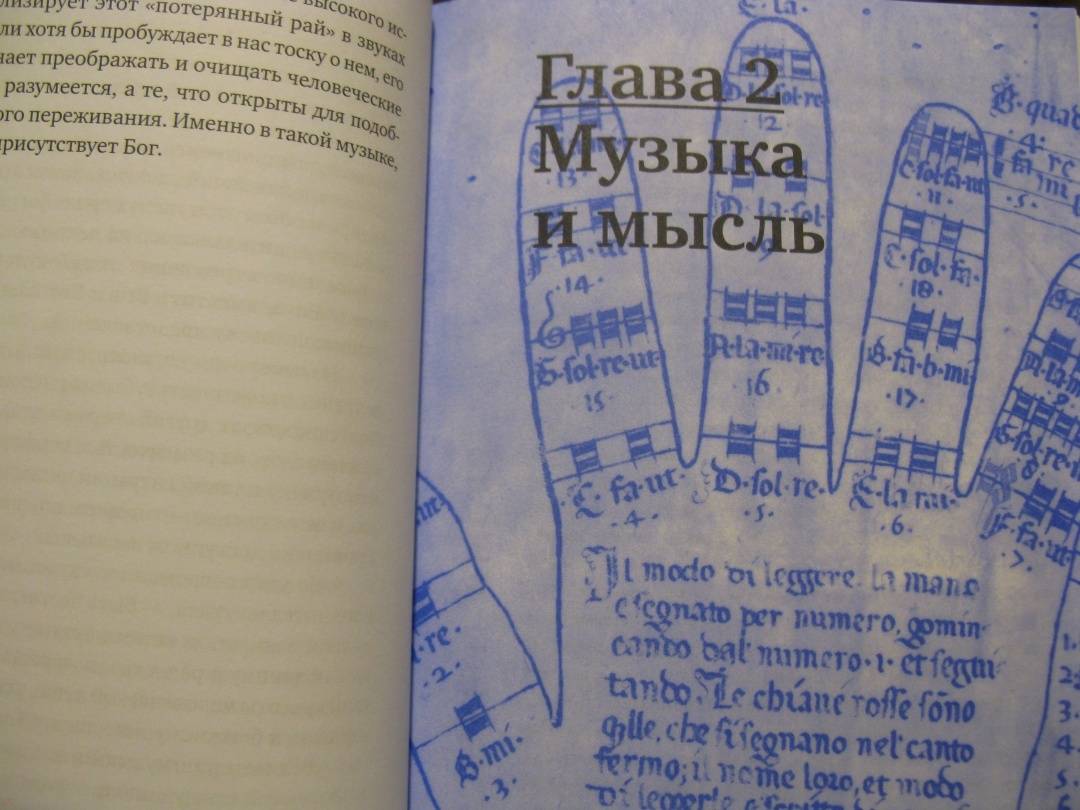 высокого ис-
лизирует этот «потерянный рай» в звуках
ли хотя бы пробуждает в нас тоску о нем, его
чает преображать и очищать человеческие
разумеется, а те, что открыты для подоб-
ого переживания. Именно в такой музыке,
присутствует Бог.
Глава 2
Музыка
и мысль
E·la·
D·la·sol·re
12
13
B·quad
·4·
·5·
C·sol·fa·ut
·11·
D·la·sol
F·fa·ut
·14·
C·sol·fa·
·18·
G·sol·re·ut·
·15·
A·la·mi·re·
·16
B·fa·b·mi
·17·
C·fa·ut·
·4·
D·sol·re·
·5·
E·la·mi·
·6·
·8·
F·fa·ut·
·7·
·re·
·2·
B·mi·
·3·
Il modo di leggere la mano
e segnato per numero, gomin-
cando dal numero·1·et segui-
tando. Le chiave rosse sōno
qlle, che si segnano nel canto
fermo; il nome loro, et modo
di leggerle
1·
2·
3·
4·
5·